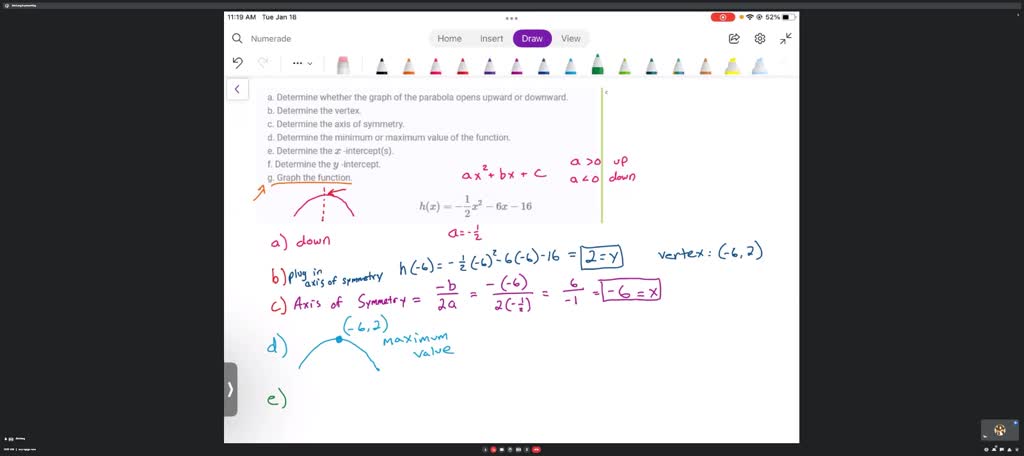 11:19 AM Tue Jan 18
52%
Numerade
Home Insert Draw View
a. Determine whether the graph of the parabola opens upward or downward.
b. Determine the vertex.
c. Determine the axis of symmetry.
d. Determine the minimum or maximum value of the function.
e. Determine the x -intercept(s).
f. Determine the y -intercept.
g. Graph the function.
ax² + bx + c
a > 0 up
a < 0 down
h(x) = -1/2x² - 6x - 16
a = -1/2
a) down
b) plug in axis of symmetry h(-6) = -1/2(-6)² - 6(-6) - 16 = 2 = y vertex: (-6, 2)
c) Axis of Symmetry = -b/2a = -(-6)/2(-1/2) = 6/-1 = -6 = x
d) (-6, 2) maximum value
e)